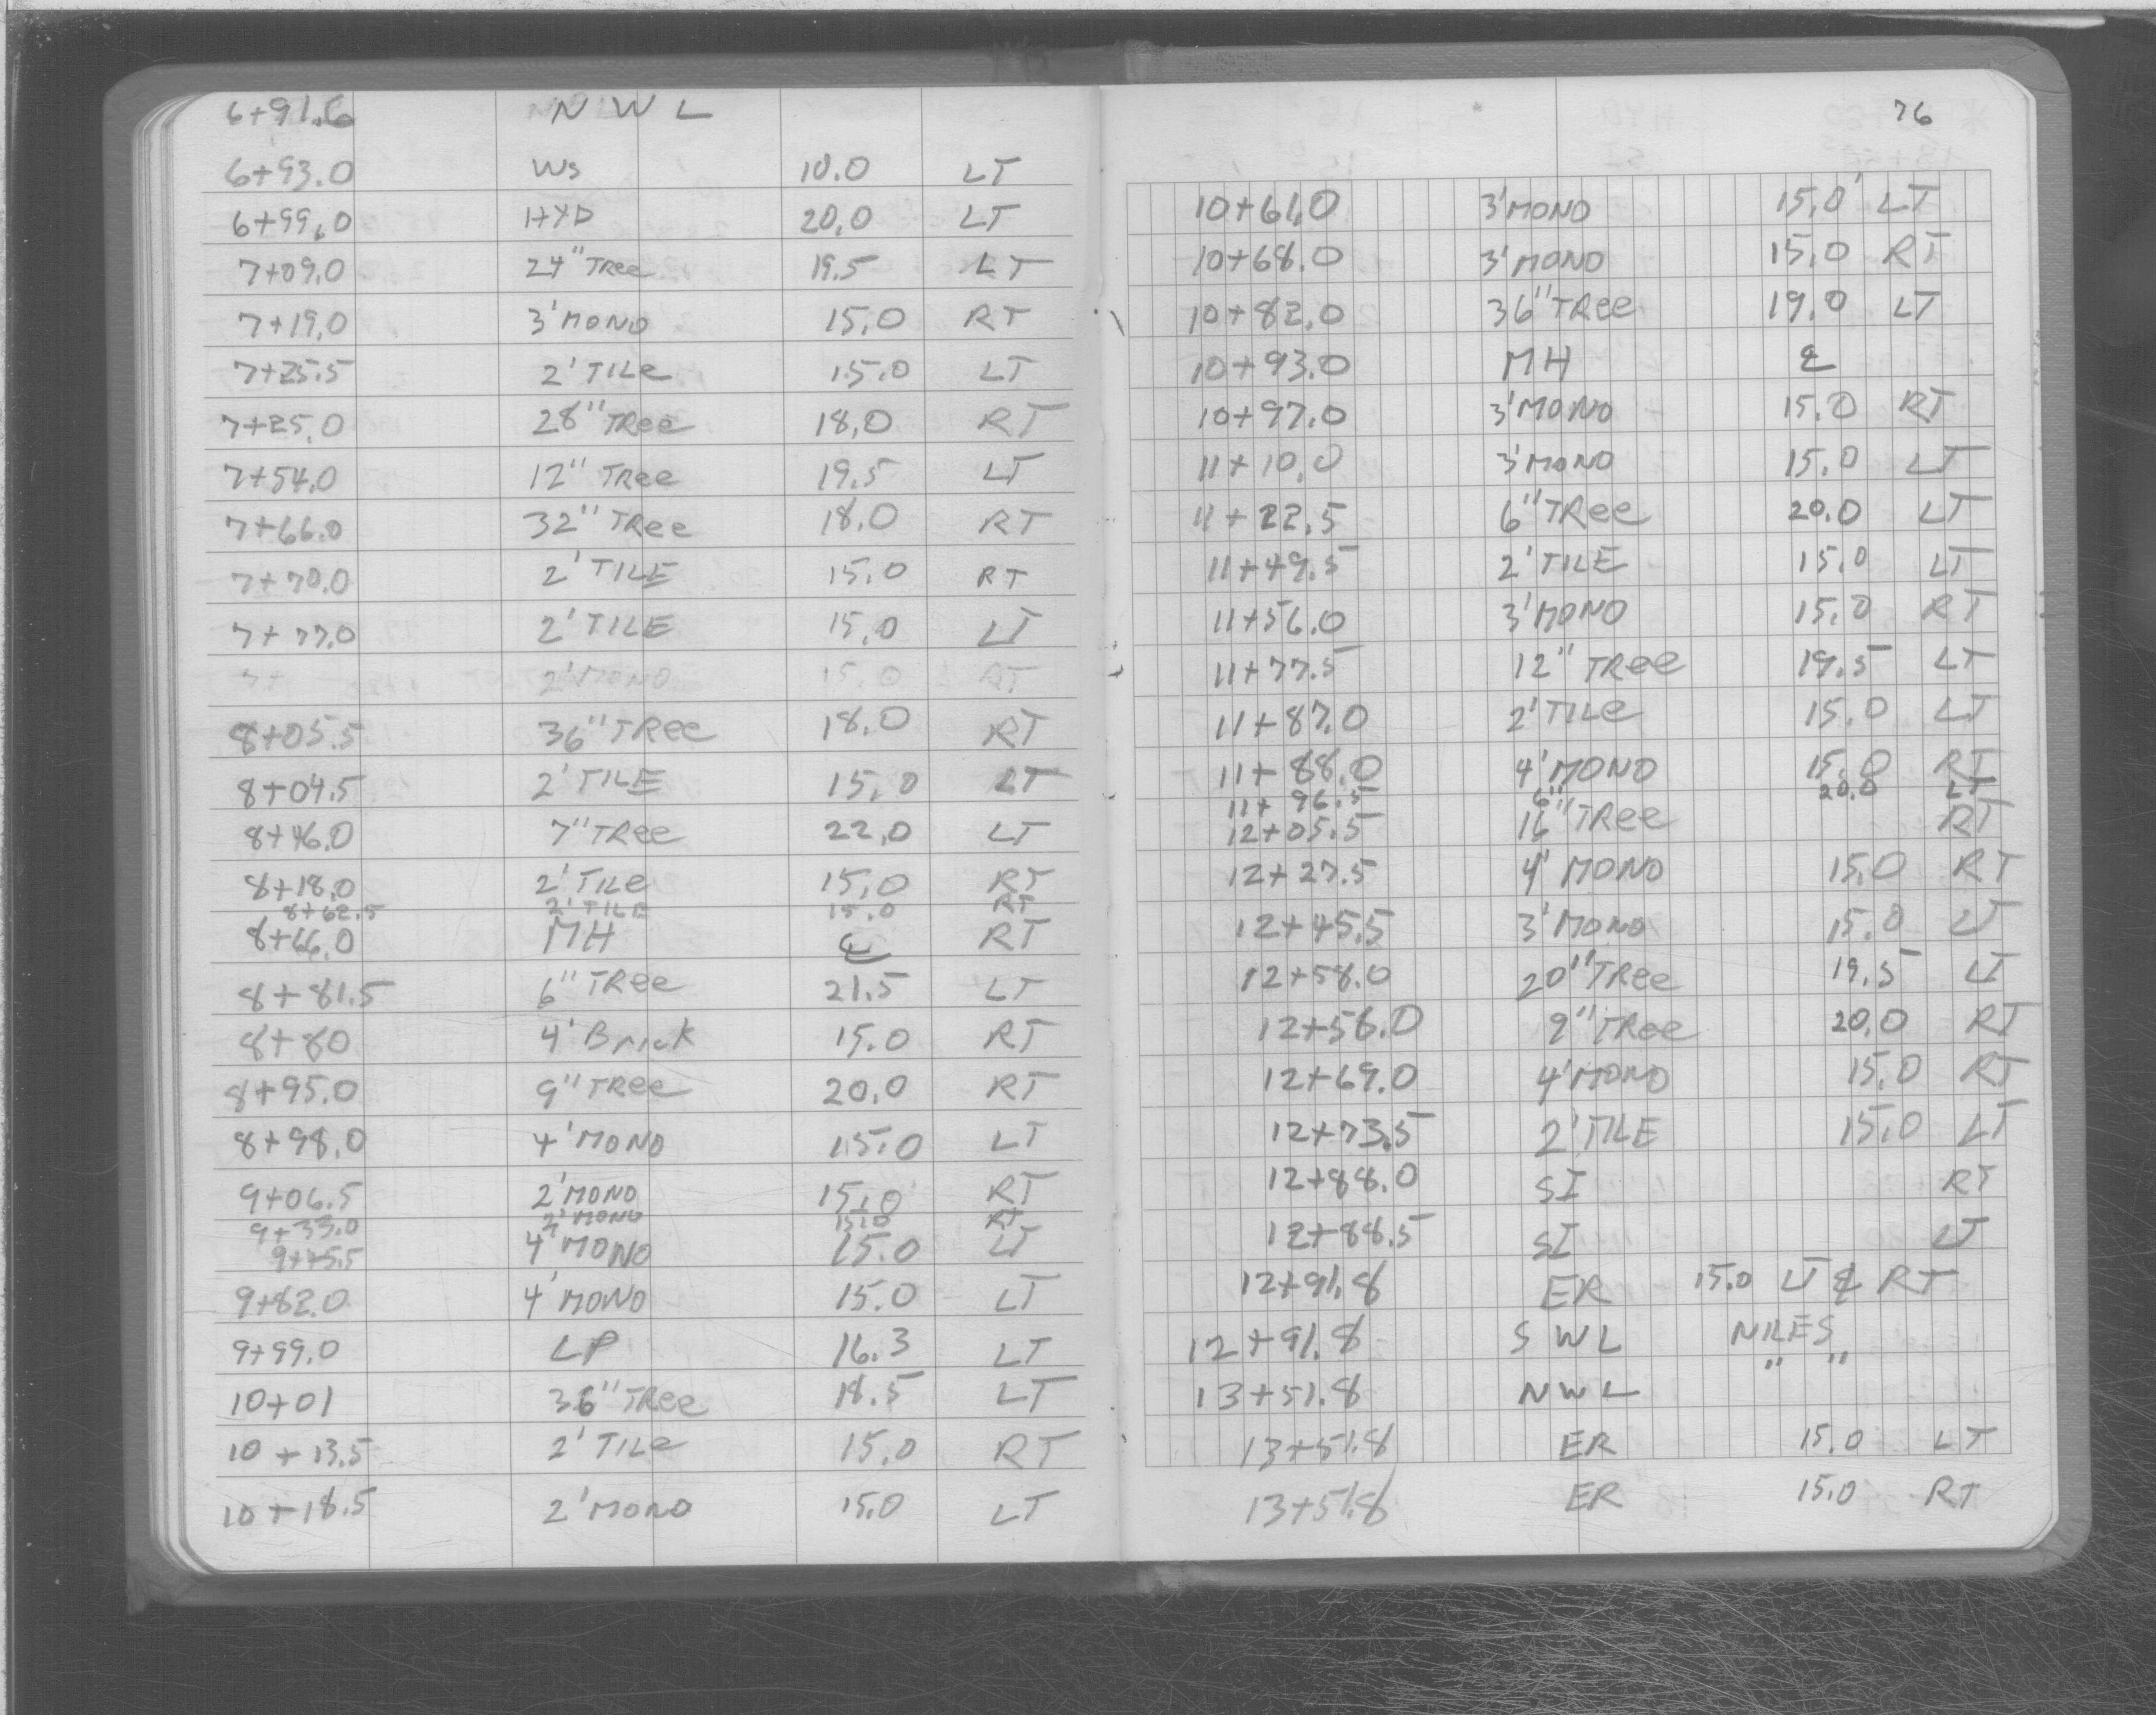 6+91.6 NWL
6+93.0 WS 10.0 LT
6+99.0 HYD 20.0 LT
7+09.0 24" Tree 19.5 LT
7+19.0 3' MONO 15.0 RT
7+25.5 2' TILe 15.0 LT
7+25.0 28" TRee 18.0 RT
7+54.0 12" TRee 19.5 LT
7+66.0 32" TRee 18.0 RT
7+70.0 2' TILE 15.0 RT
7+77.0 2' TILE 15.0 LT
7+ 2' MONO 15.0 RT
8+05.5 36" TRee 18.0 RT
8+04.5 2' TILE 15.0 LT
8+46.0 7" TRee 22.0 LT
8+18.0 2' TILe 15.0 RT
8+62.5 2' TILE 15.0 RT
8+66.0 MH ℄ RT
8+81.5 6" TRee 21.5 LT
8+80 4' Brick 15.0 RT
8+95.0 9" TRee 20.0 RT
8+98.0 4' MONO 15.0 LT
9+06.5 2' MONO 15.0 RT
9+33.0 2' MONO 15.0 RT
9+45.5 4' MONO 15.0 LT
9+82.0 4' MONO 15.0 LT
9+99.0 LP 16.3 LT
10+01 36" TRee 18.5 LT
10+13.5 2' TILe 15.0 RT
10+18.5 2' MONO 15.0 LT
76
10+61.0 3' MONO 15.0' LT
10+68.0 3' MONO 15.0 RT
10+82.0 36" TRee 19.0 LT
10+93.0 MH ℄
10+97.0 3' MONO 15.0 RT
11+10.0 3' MONO 15.0 LT
11+22.5 6" TRee 20.0 LT
11+49.5 2' TILE 15.0 LT
11+56.0 3' MONO 15.0 RT
11+77.5 12" TRee 19.5 LT
11+87.0 2' TILe 15.0 LT
11+88.0 4' MONO 15.0 RT
11+96.5 6" 20.0 LT
12+05.5 16" TRee RT
12+27.5 4' MONO 15.0 RT
12+45.5 3' MONO 15.0 LT
12+58.0 20" TRee 19.5 LT
12+56.0 9" TRee 20.0 RT
12+69.0 4' MONO 15.0 RT
12+73.5 2' TILE 15.0 LT
12+88.0 SI RT
12+88.5 SI LT
12+91.8 ER 15.0 LT & RT
12+91.8 SWL NILES
13+51.8 NWL " "
13+51.8 ER 15.0 LT
13+51.8 ER 15.0 RT